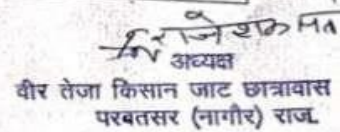 अध्यक्ष
वीर तेजा किसान जाट छात्रावास
परबतसर (नागौर) राज.